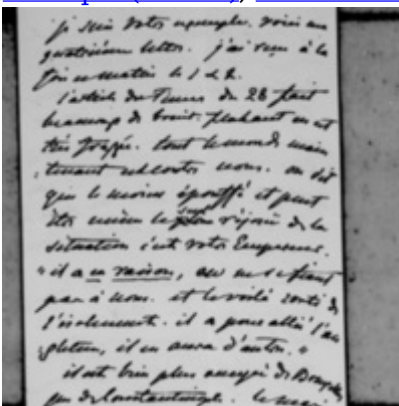 je suis votre exemple. voici ma
quatrième lettre. j'ai reçu à la
fois ce matin le 1 & 2.
l'article du Times du 28 fait
beaucoup de bruit. Flahaut en est
très frappé. tout le monde main
tenant est contre nous. on dit
que le moins et peut
être même le seul réjoui de la
situation c'est votre Empereur.
"il a eu raison, on ne se fiant
pas à nous. et le voilà sorti de
l'isolement. il a pour allié l'an
gleterre, il en aura d'autres."
il est bien plus occupé de
que de Constantinople. le